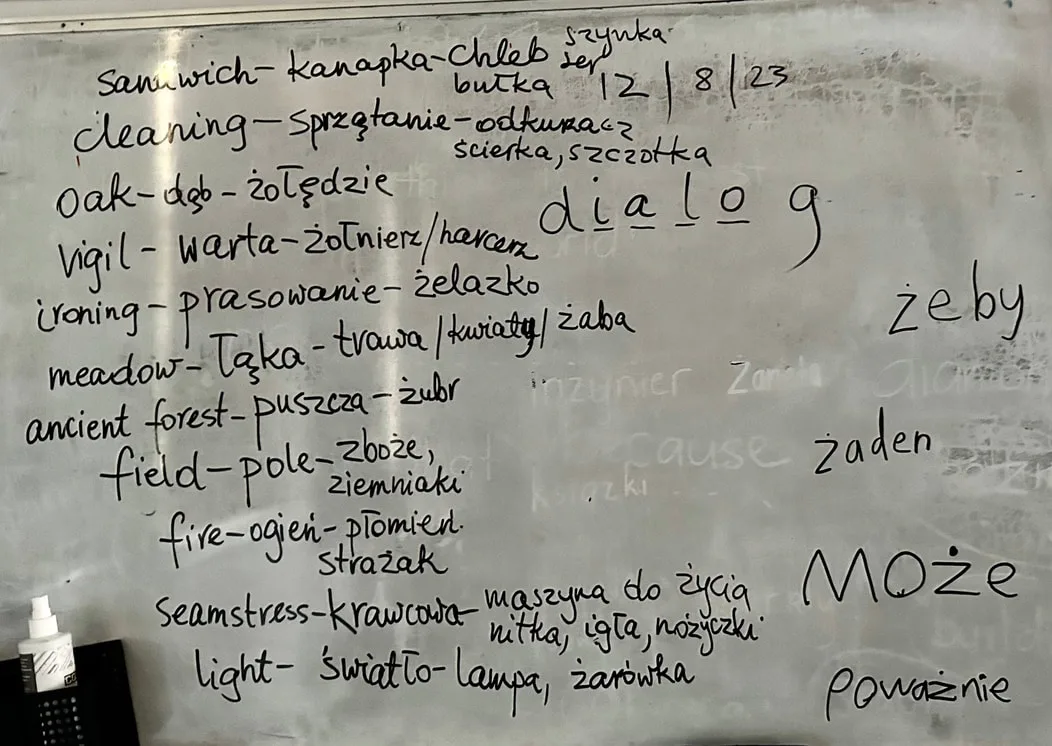 sandwich – kanapka – chleb szynka
bułka ser
12 | 8 | 23
cleaning – sprzątanie – odkurzacz
ścierka, szczotka
oak – dąb – żołędzie
d i a l o g
vigil – warta – żołnierz / harcerz
ironing – prasowanie – żelazko
żeby
meadow – łąka – trawa / kwiaty / żaba
inżynier
ancient forest – puszcza – żubr
cause
żaden
field – pole – zboże,
ziemniaki
książki
fire – ogień – płomień
strażak
może
seamstress – krawcowa – maszyna do życia
nitka, igła, nożyczki
light – światło – lampa, żarówka
poważnie